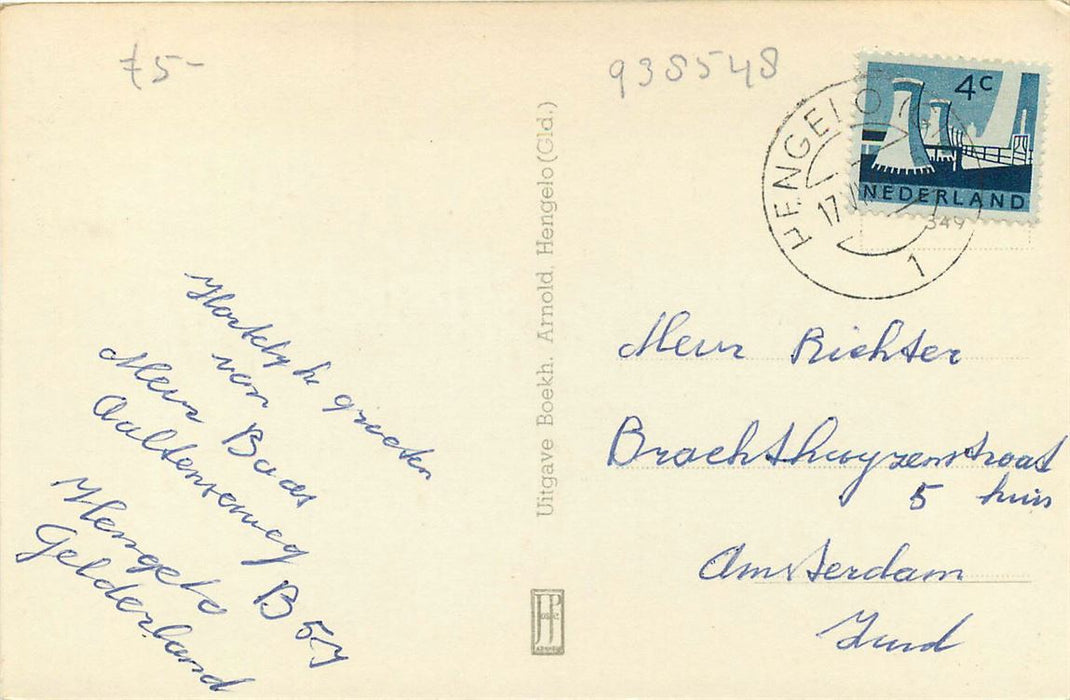 f 5-
938548
HENGELO (G
17 VI
1
4c
NEDERLAND
349
Uitgave Boekh. Arnold, Hengelo (Gld.)
Hartelijke groeten
van
Meur Baas
Aaltenseweg B 57
Hengelo
Gelderland
Meur Richter
Brachthuyzenstraat
5 huis
Amsterdam
Zuid
JP